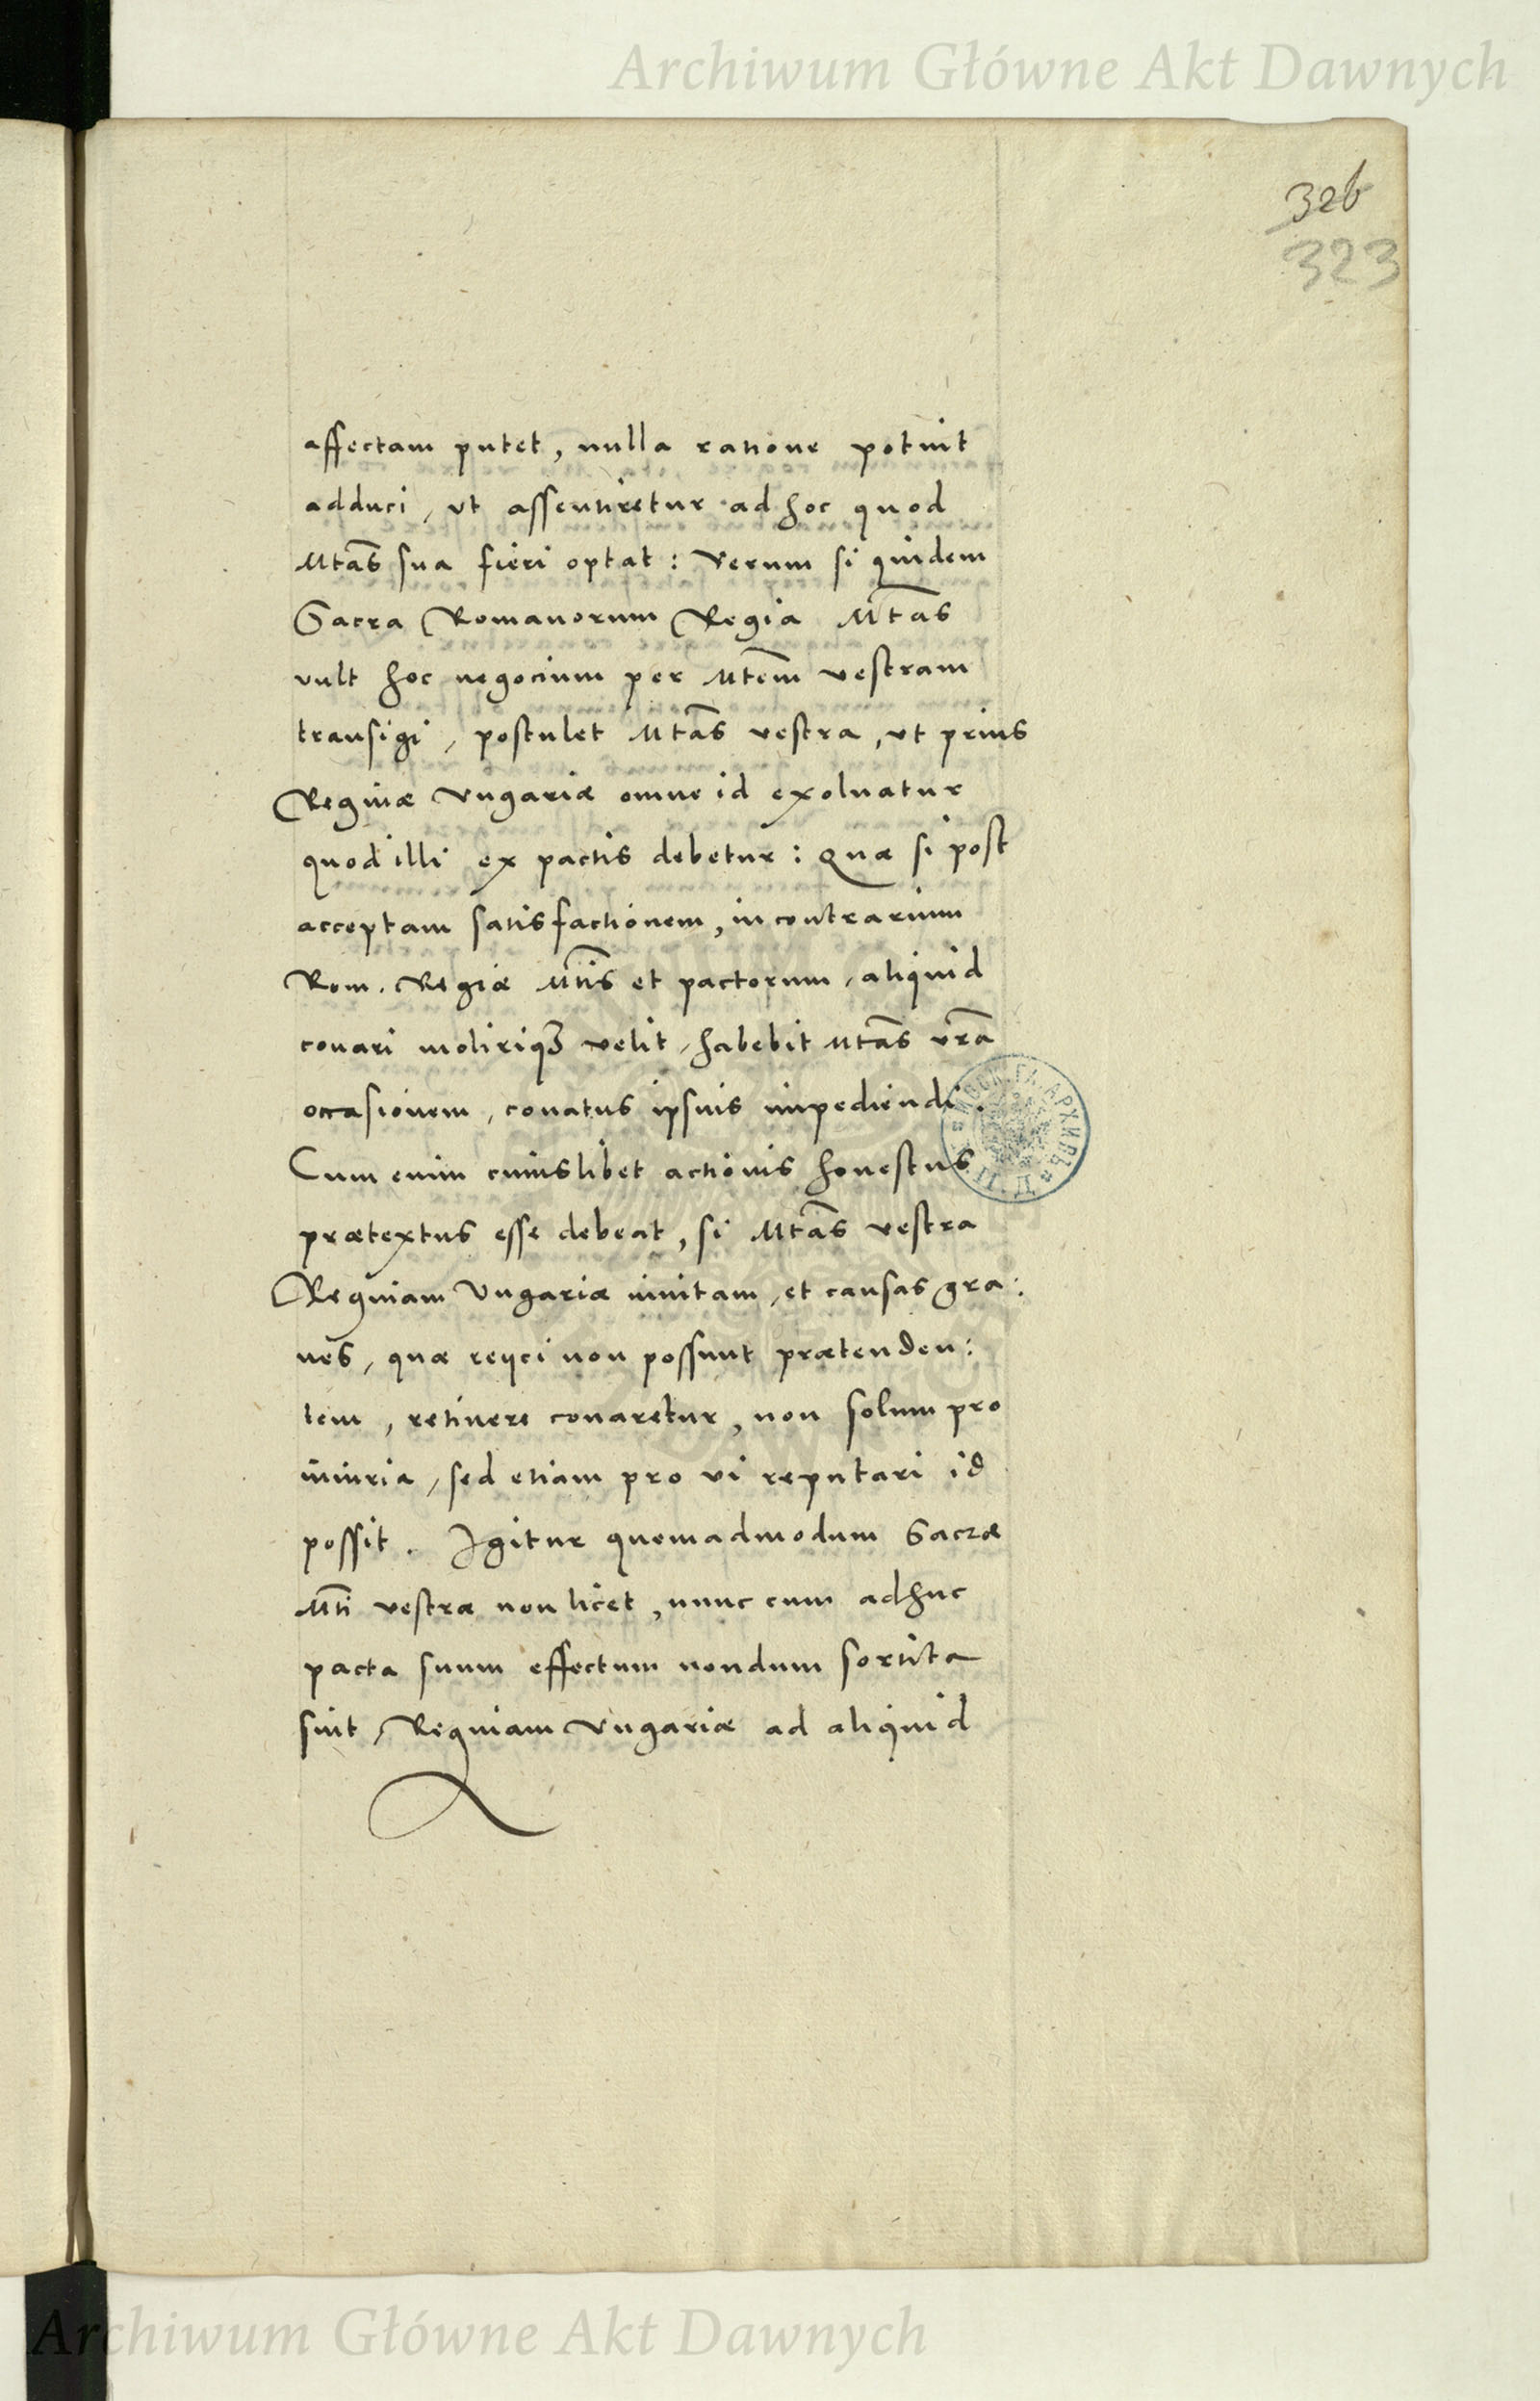 Archiwum Główne Akt Dawnych
326
323
affectam putet, nulla ratione potuit
adduci, ut assentiretur ad hoc quod
Mtas sua fieri optat: Verum si quidem
Sacra Romanorum Regia Mtas
vult hoc negocium per Mtem vestram
transigi, postulet Mtas vestra, ut prius
Reginæ Vngariæ omne id exoluatur
quod illi ex pactis debetur: Quæ si post
acceptam satisfactionem, in contrarium
Rom. Regiæ Mtis et pactorum, aliquid
conari moliriq3 velit, habebit Mtas vra
occasionem, conatus ipsius impediendi.
Cum enim cuiuslibet actionis honestus
prætextus esse debeat, si Mtas vestra
Reginam Vngariæ inuitam, et causas gra:
ues, quæ reijci non possunt prætenden:
tem, retinere conaretur, non solum pro
iniuria, sed etiam pro vi reputari id
possit. Igitur quemadmodum Sacræ
Mti vestræ non licet, nunc cum adhuc
pacta suum effectum nondum sortita
sint, Reginam Vngariæ ad aliquid
Archiwum Główne Akt Dawnych